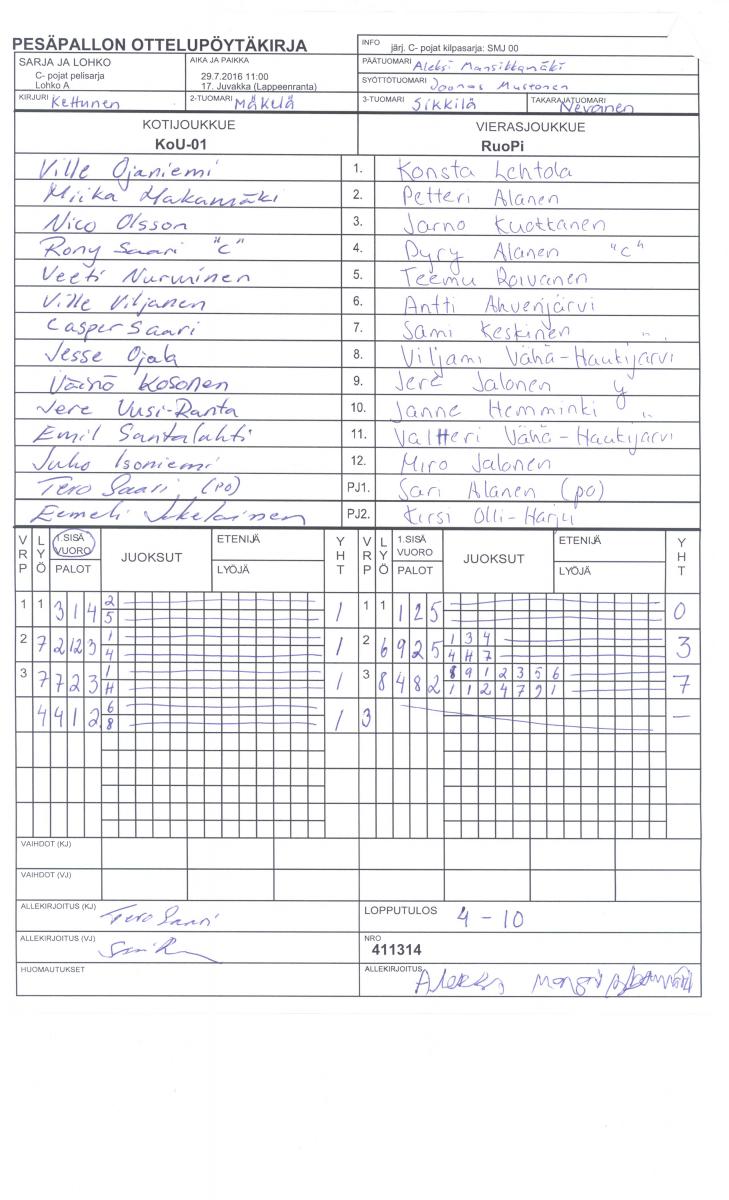 PESÄPALLON OTTELUPÖYTÄKIRJA
INFO järj. C- pojat kilpasarja: SMJ 00
SARJA JA LOHKO
C- pojat pelisarja
Lohko A
AIKA JA PAIKKA
29.7.2016 11:00
17. Juvakka (Lappeenranta)
PÄÄTUOMARI Aleksi Mansikkamäki
SYÖTTÖTUOMARI Joonas Mustonen
KIRJURI Kettunen
2-TUOMARI MÄKELÄ
3-TUOMARI SIKKILÄ
TAKARAJATUOMARI Nevanen
KOTIJOUKKUE
KoU-01
VIERASJOUKKUE
RuoPi
Ville Ojaniemi 1. Konsta Lehtola
Miika Makamäki 2. Petteri Alanen
Nico Olsson 3. Jarno Kuottanen
Rony Saari "C" 4. Pyry Alanen "C"
Veeti Nurminen 5. Teemu Roivanen
Ville Viljanen 6. Antti Ahvenjärvi
Casper Saari 7. Sami Keskinen
Jesse Ojala 8. Viljami Vähä-Hautijärvi
Väinö Kosonen 9. Jere Jalonen y
Jere Uusi-Ranta 10. Janne Hemminki "
Emil Santalahti 11. Valtteri Vähä-Hautijärvi
Juho Isoniemi 12. Miro Jalonen
Tero Saari (PO) PJ1. Sari Alanen (po)
Eemeli PJ2. Kirsi Olli-Harju
VRP LYÖ 1.SISÄ VUORO PALOT JUOKSUT ETENIJÄ LYÖJÄ YHT VRP LYÖ 1.SISÄ VUORO PALOT JUOKSUT ETENIJÄ LYÖJÄ YHT
1 1 3 1 4 2 5 1 1 1 1 2 5 0
2 7 2 12 3 1 4 1 2 6 9 2 5 1 3 4 4 4 7 3
3 7 7 2 3 1 4 1 3 8 4 8 2 8 9 1 2 3 5 6 1 1 2 4 7 9 1 7
4 4 1 2 6 8 1 3 –
VAIHDOT (KJ)
VAIHDOT (VJ)
ALLEKIRJOITUS (KJ) Tero Saari
LOPPUTULOS 4 - 10
ALLEKIRJOITUS (VJ)
NRO
411314
HUOMAUTUKSET
ALLEKIRJOITUS Aleksi